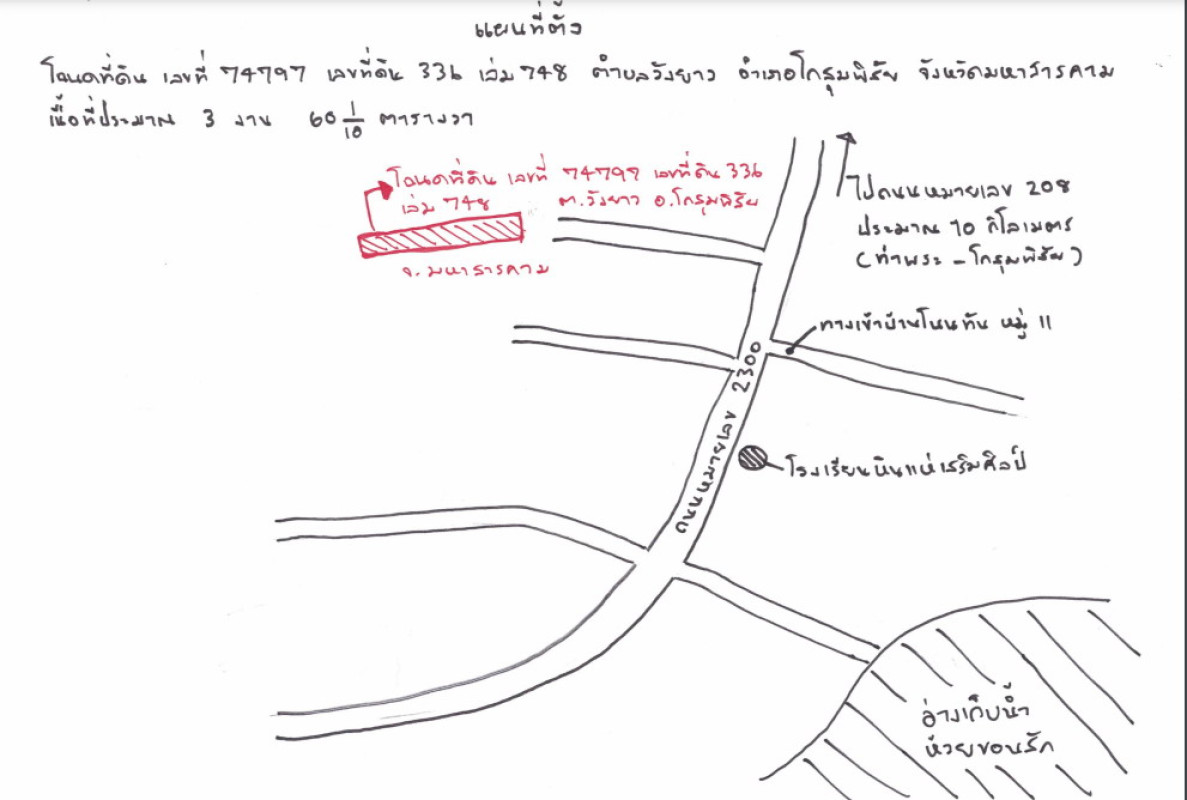 แผนที่ตั้ง
โฉนดที่ดิน เลขที่ 74797 เลขที่ดิน 336 เล่ม 748 ตำบลวังยาว อำเภอโกสุมพิสัย จังหวัดมหาสารคาม
เนื้อที่ประมาณ 3 งาน 60 1/10 ตารางวา
โฉนดที่ดิน เลขที่ 74797 เลขที่ดิน 336
เล่ม 748 ต.วังยาว อ.โกสุมพิสัย
จ.มหาสารคาม
ไปถนนหมายเลข 208
ประมาณ 10 กิโลเมตร
(ท่าพระ - โกสุมพิสัย)
ทางเข้าบ้านโนนทัน หมู่ 11
ถนนหมายเลข 2300
โรงเรียนหินแห่เสริมศิลป์
อ่างเก็บน้ำ
ห้วยขอนสัก